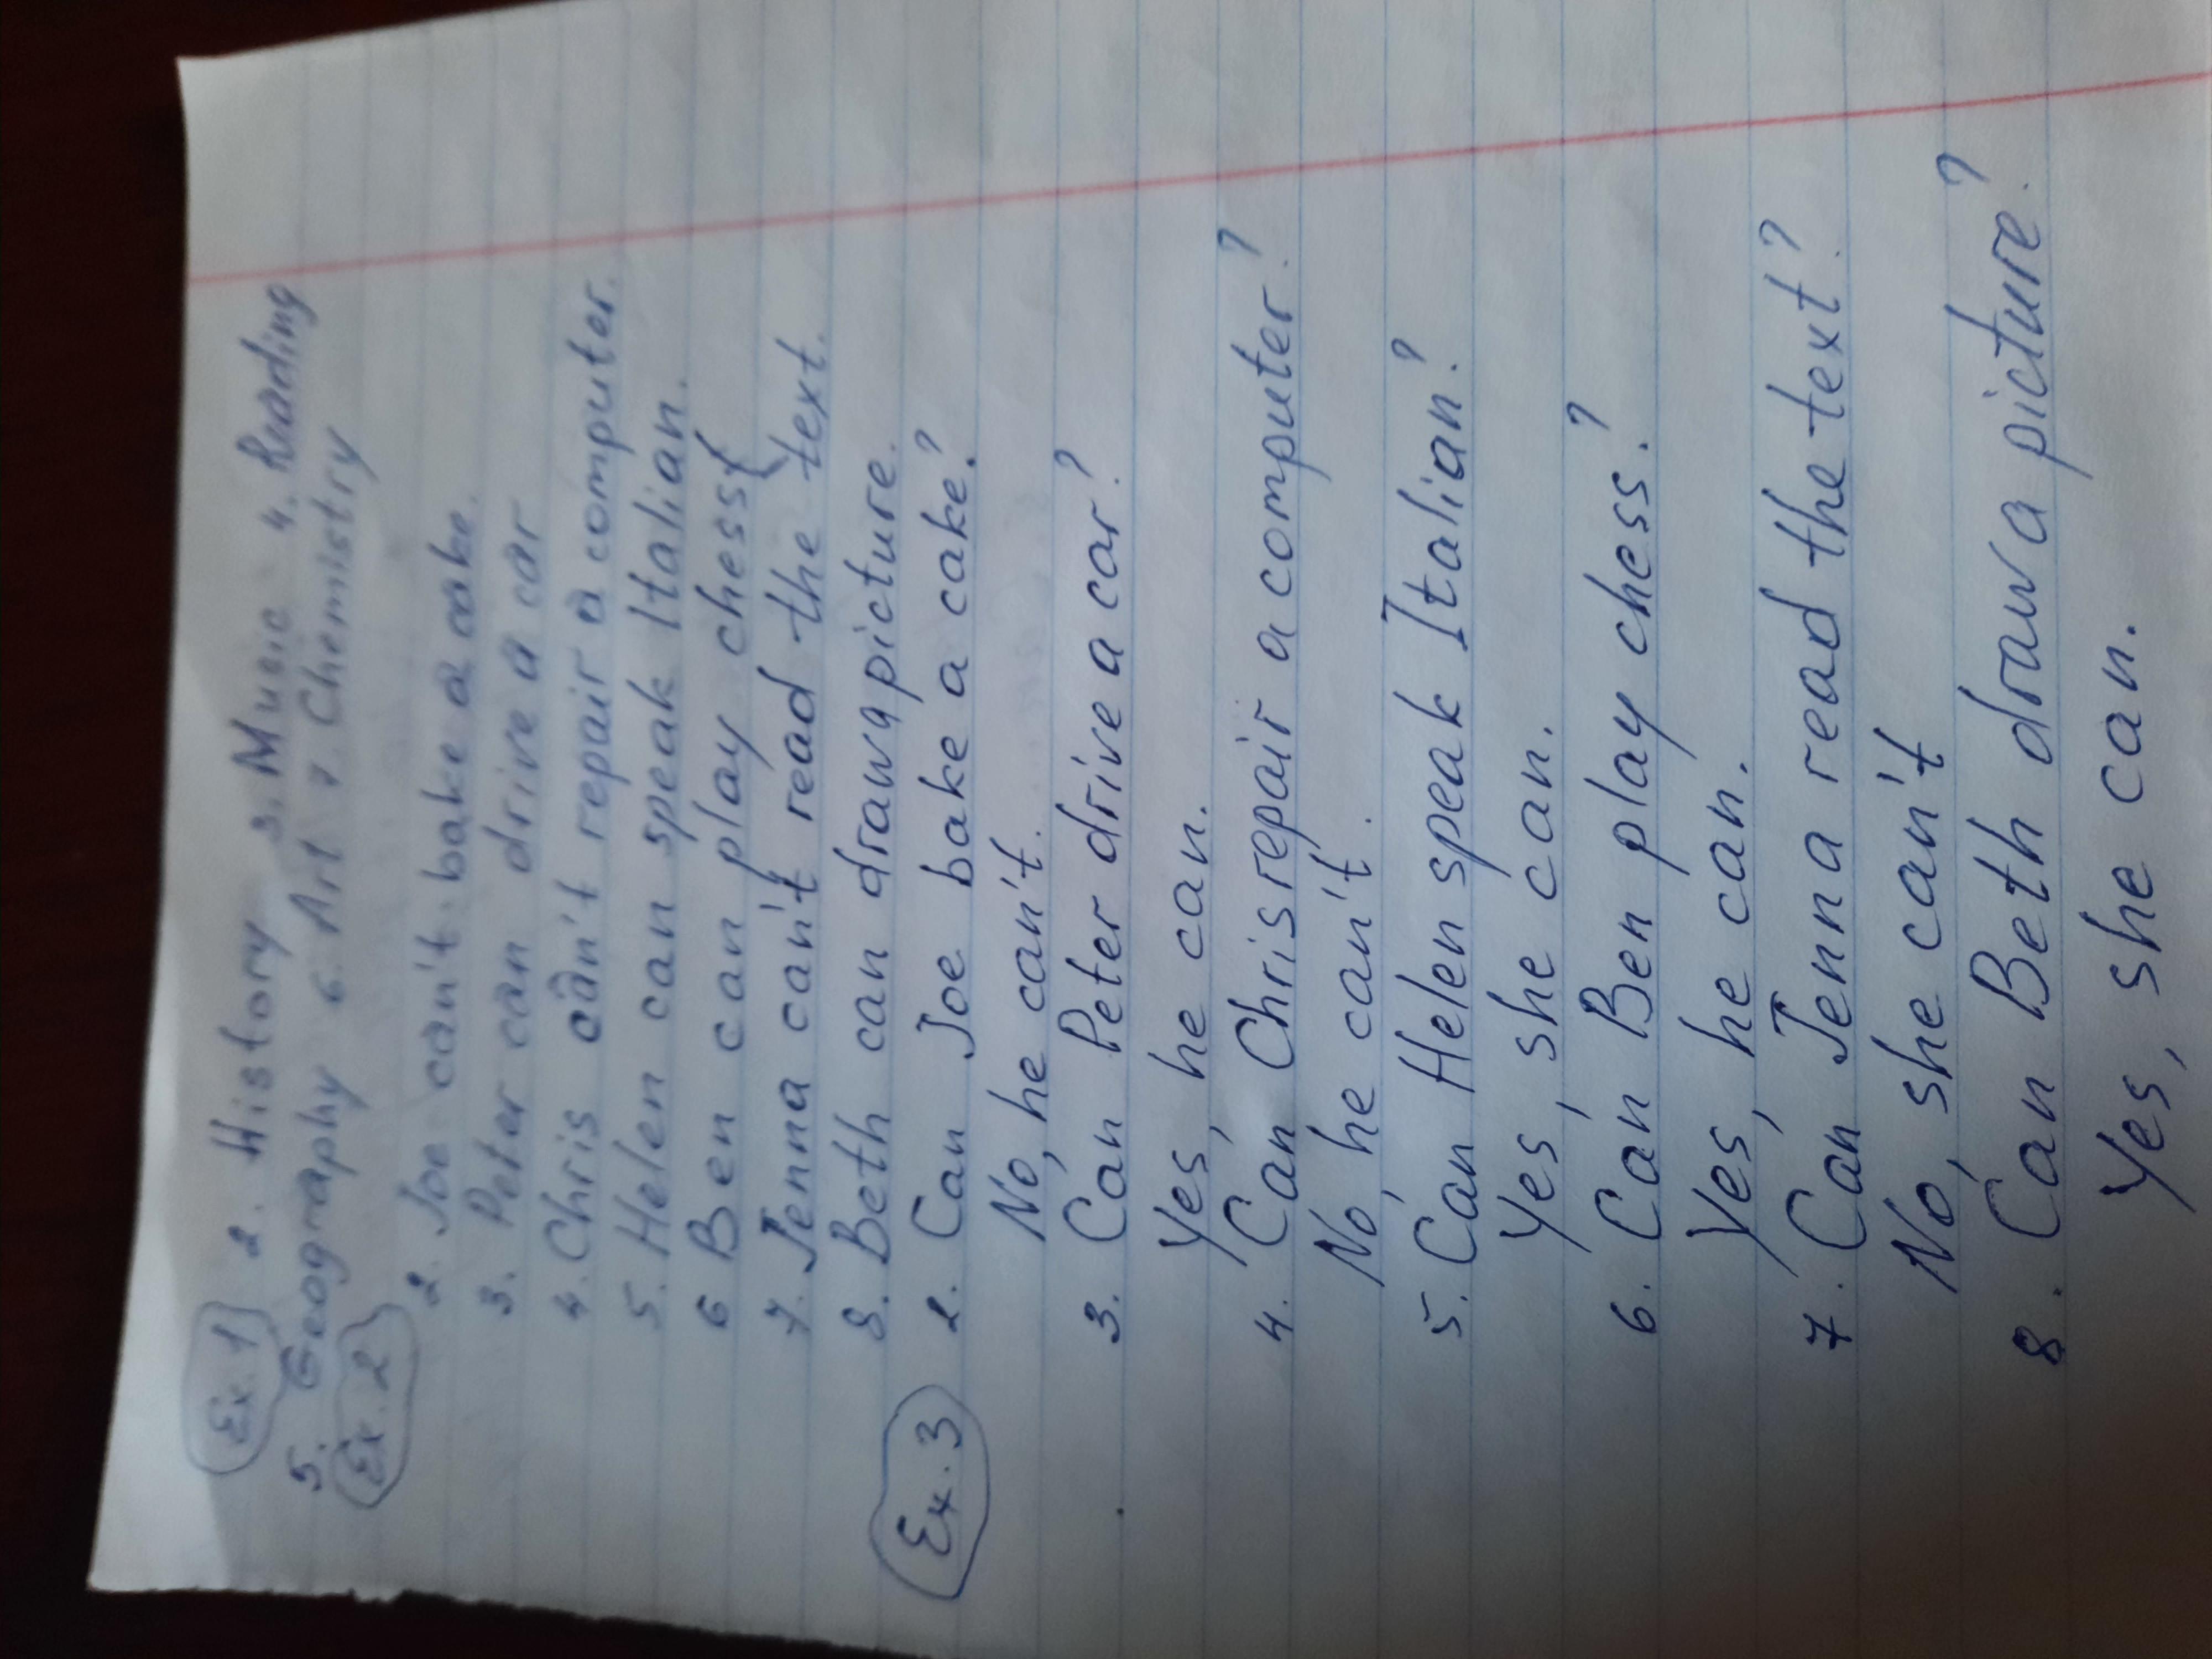 Ex. 1 2. History 3. Music 4. Reading
5. Geography 6. Art 7. Chemistry
Ex. 2
2. Joe can't bake a cake.
3. Peter can drive a car
4. Chris can't repair a computer.
5. Helen can speak Italian.
6 Ben can play chess
7. Jenna can't read the text.
8. Beth can draw a picture.
Ex. 3 2. Can Joe bake a cake?
No, he can't.
3. Can Peter drive a car?
Yes, he can.
4. Can Chris repair a computer?
No, he can't.
5. Can Helen speak Italian?
Yes, she can.
6. Can Ben play chess?
Yes, he can.
7. Can Jenna read the text?
No, she can't
8. Can Beth draw a picture?
Yes, she can.